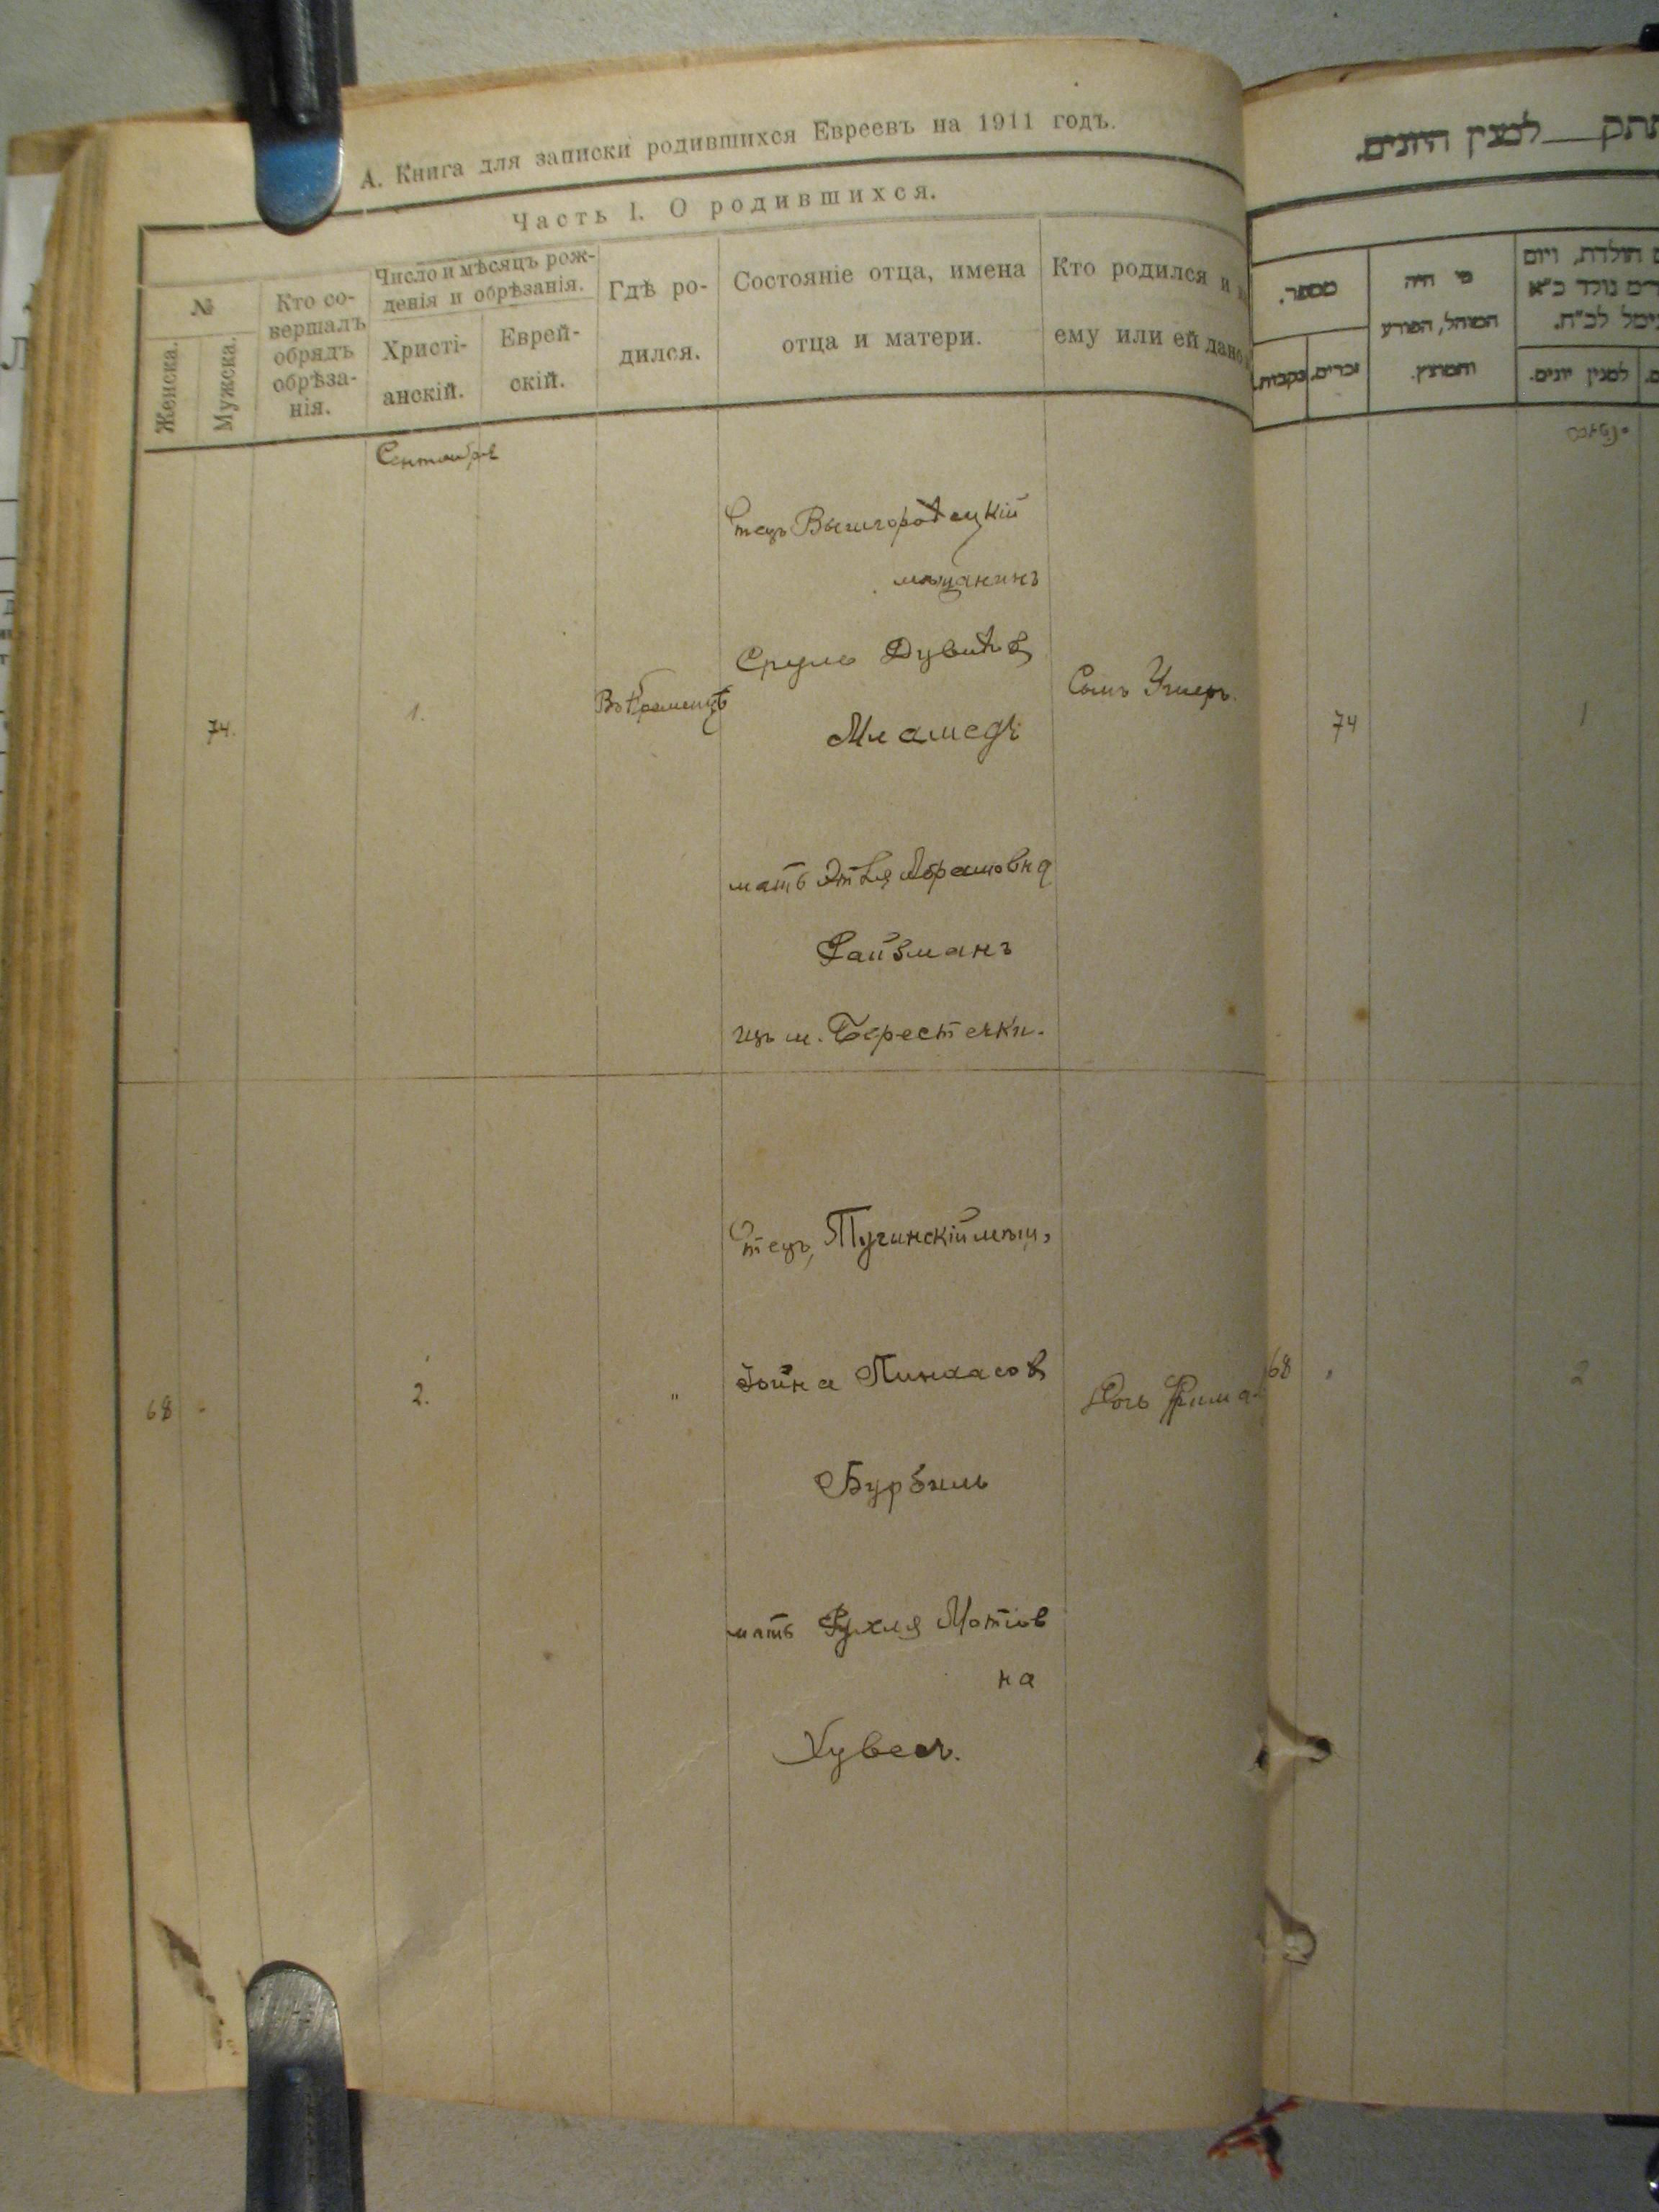 А. Книга для записки родившихся Евреевъ на 1911 годъ.
Часть I. О родившихся.
№
Женска.
Мужска.
Кто со-
вершалъ
обрядъ
обрѣза-
нія.
Число и мѣсяцъ рож-
денія и обрѣзанія.
Христі-
анскій.
Еврей-
скій.
Гдѣ ро-
дился.
Состояніе отца, имена
отца и матери.
Кто родился и
ему или ей дано
Сентября
74.
1.
Въ Кременцѣ
Отецъ Вышгородецкій
мѣщанинъ
Сруль Дувидов
Мламедъ
мать Этля Абрамовна
Файзманъ
изъ м. Берестечки.
Сынъ Ушеръ.
68
2.
"
Отецъ, Тучинскій мѣщ,
Іойна Пинхасов
Бурбиль
мать Рухля Мотіов
на
Хувесъ.
Дочь Фрима
למנין היונים.
מספר.
נקבות.
זכרים.
מי היה
המוהל, הפורע
והמוצץ.
למנין יונים.
74
1
68
2